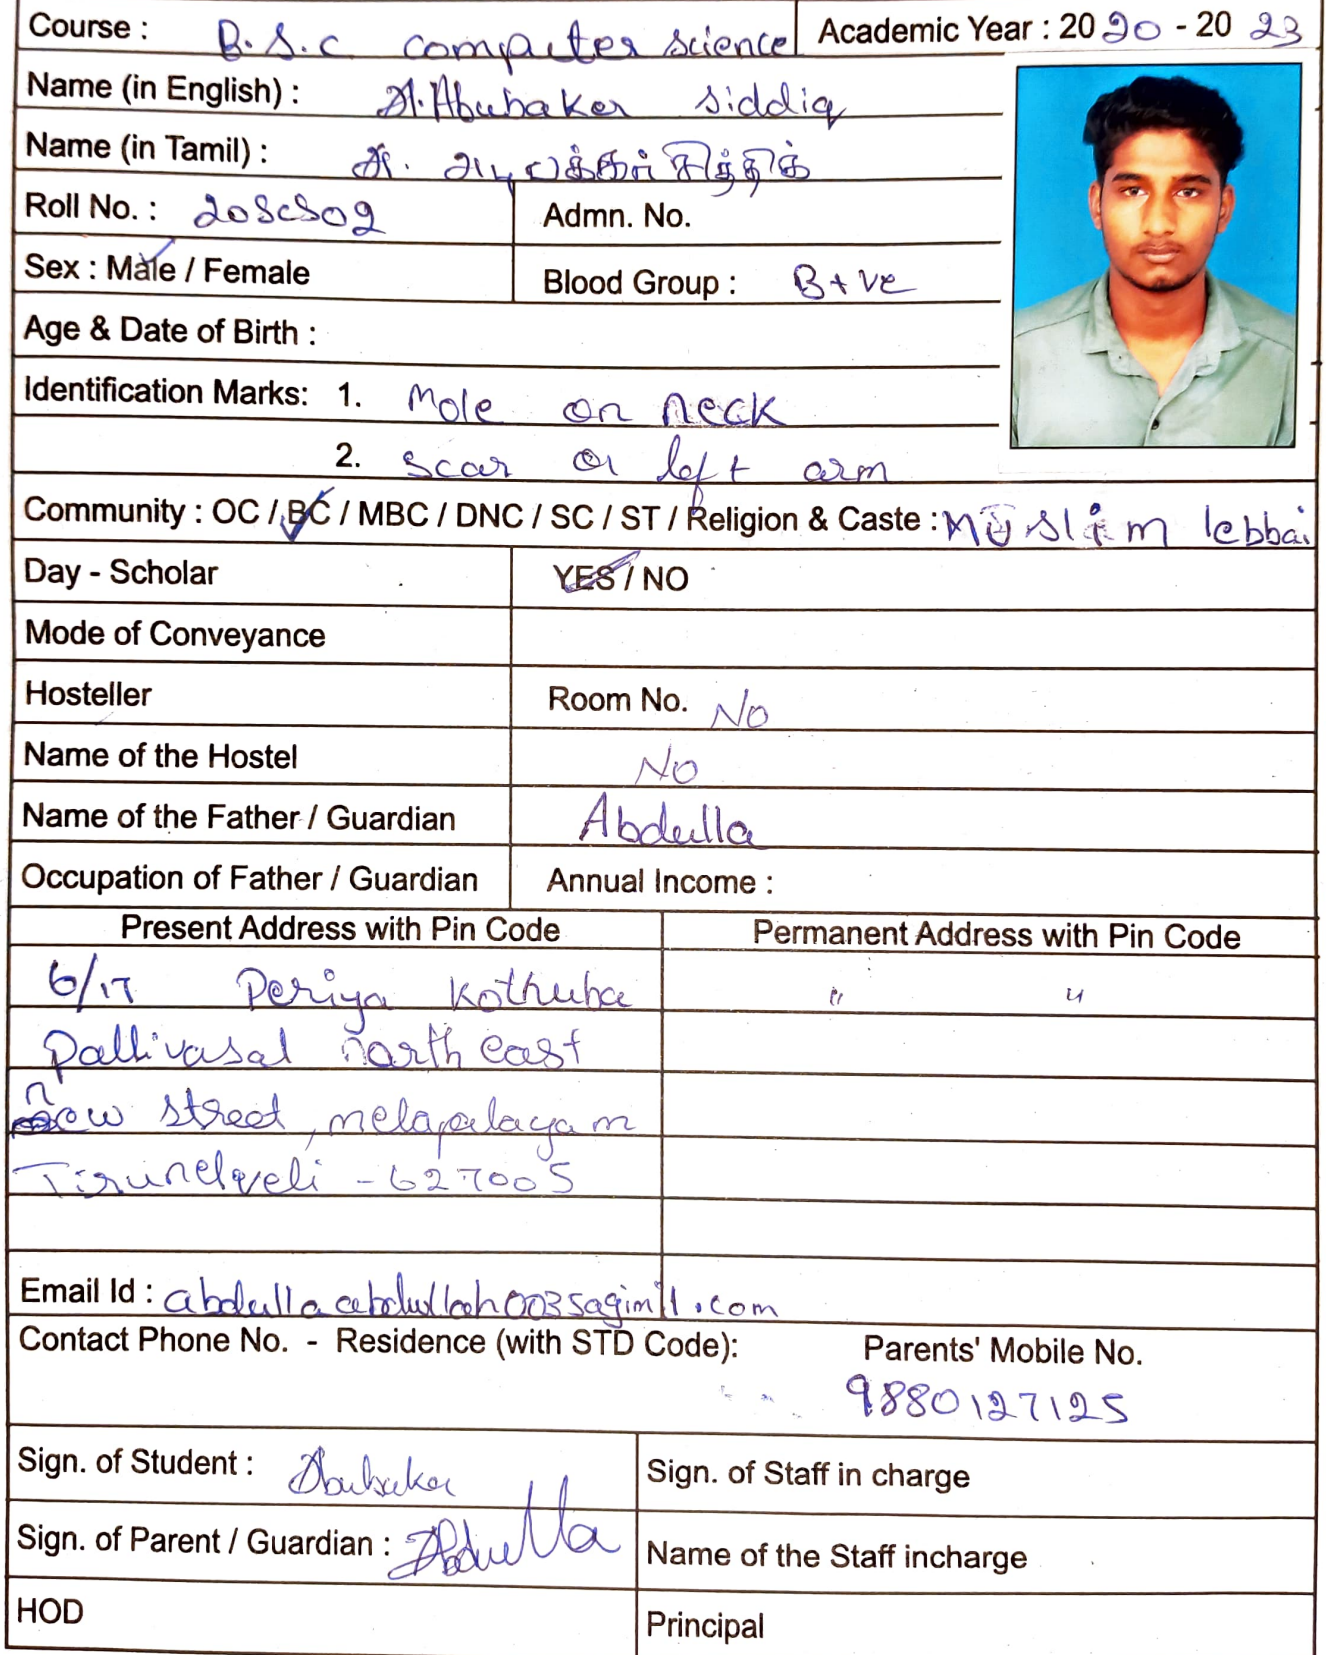 Course : B.S.c computer science Academic Year : 2020 - 2023
Name (in English) : A. Abubaker siddiq
Name (in Tamil) : அ. அபுபக்கர் சித்திக்
Roll No. : 20SCS02 Admn. No.
Sex : Male / Female Blood Group : B+ve
Age & Date of Birth :
Identification Marks: 1. Mole on neck
2. scar on left arm
Community : OC / BC / MBC / DNC / SC / ST / Religion & Caste : Muslim lebbai
Day - Scholar YES / NO
Mode of Conveyance
Hosteller Room No. No
Name of the Hostel No
Name of the Father / Guardian Abdulla
Occupation of Father / Guardian Annual Income :
Present Address with Pin Code Permanent Address with Pin Code
6/17 Periya Kothuba " "
Pallivasal north east
new street, melapalayam
Tirunelveli - 627005
Email Id :
Contact Phone No. - Residence (with STD Code): Parents' Mobile No.
9880127125
Sign. of Student : Abubaker Sign. of Staff in charge
Sign. of Parent / Guardian : Abdulla Name of the Staff incharge
HOD Principal